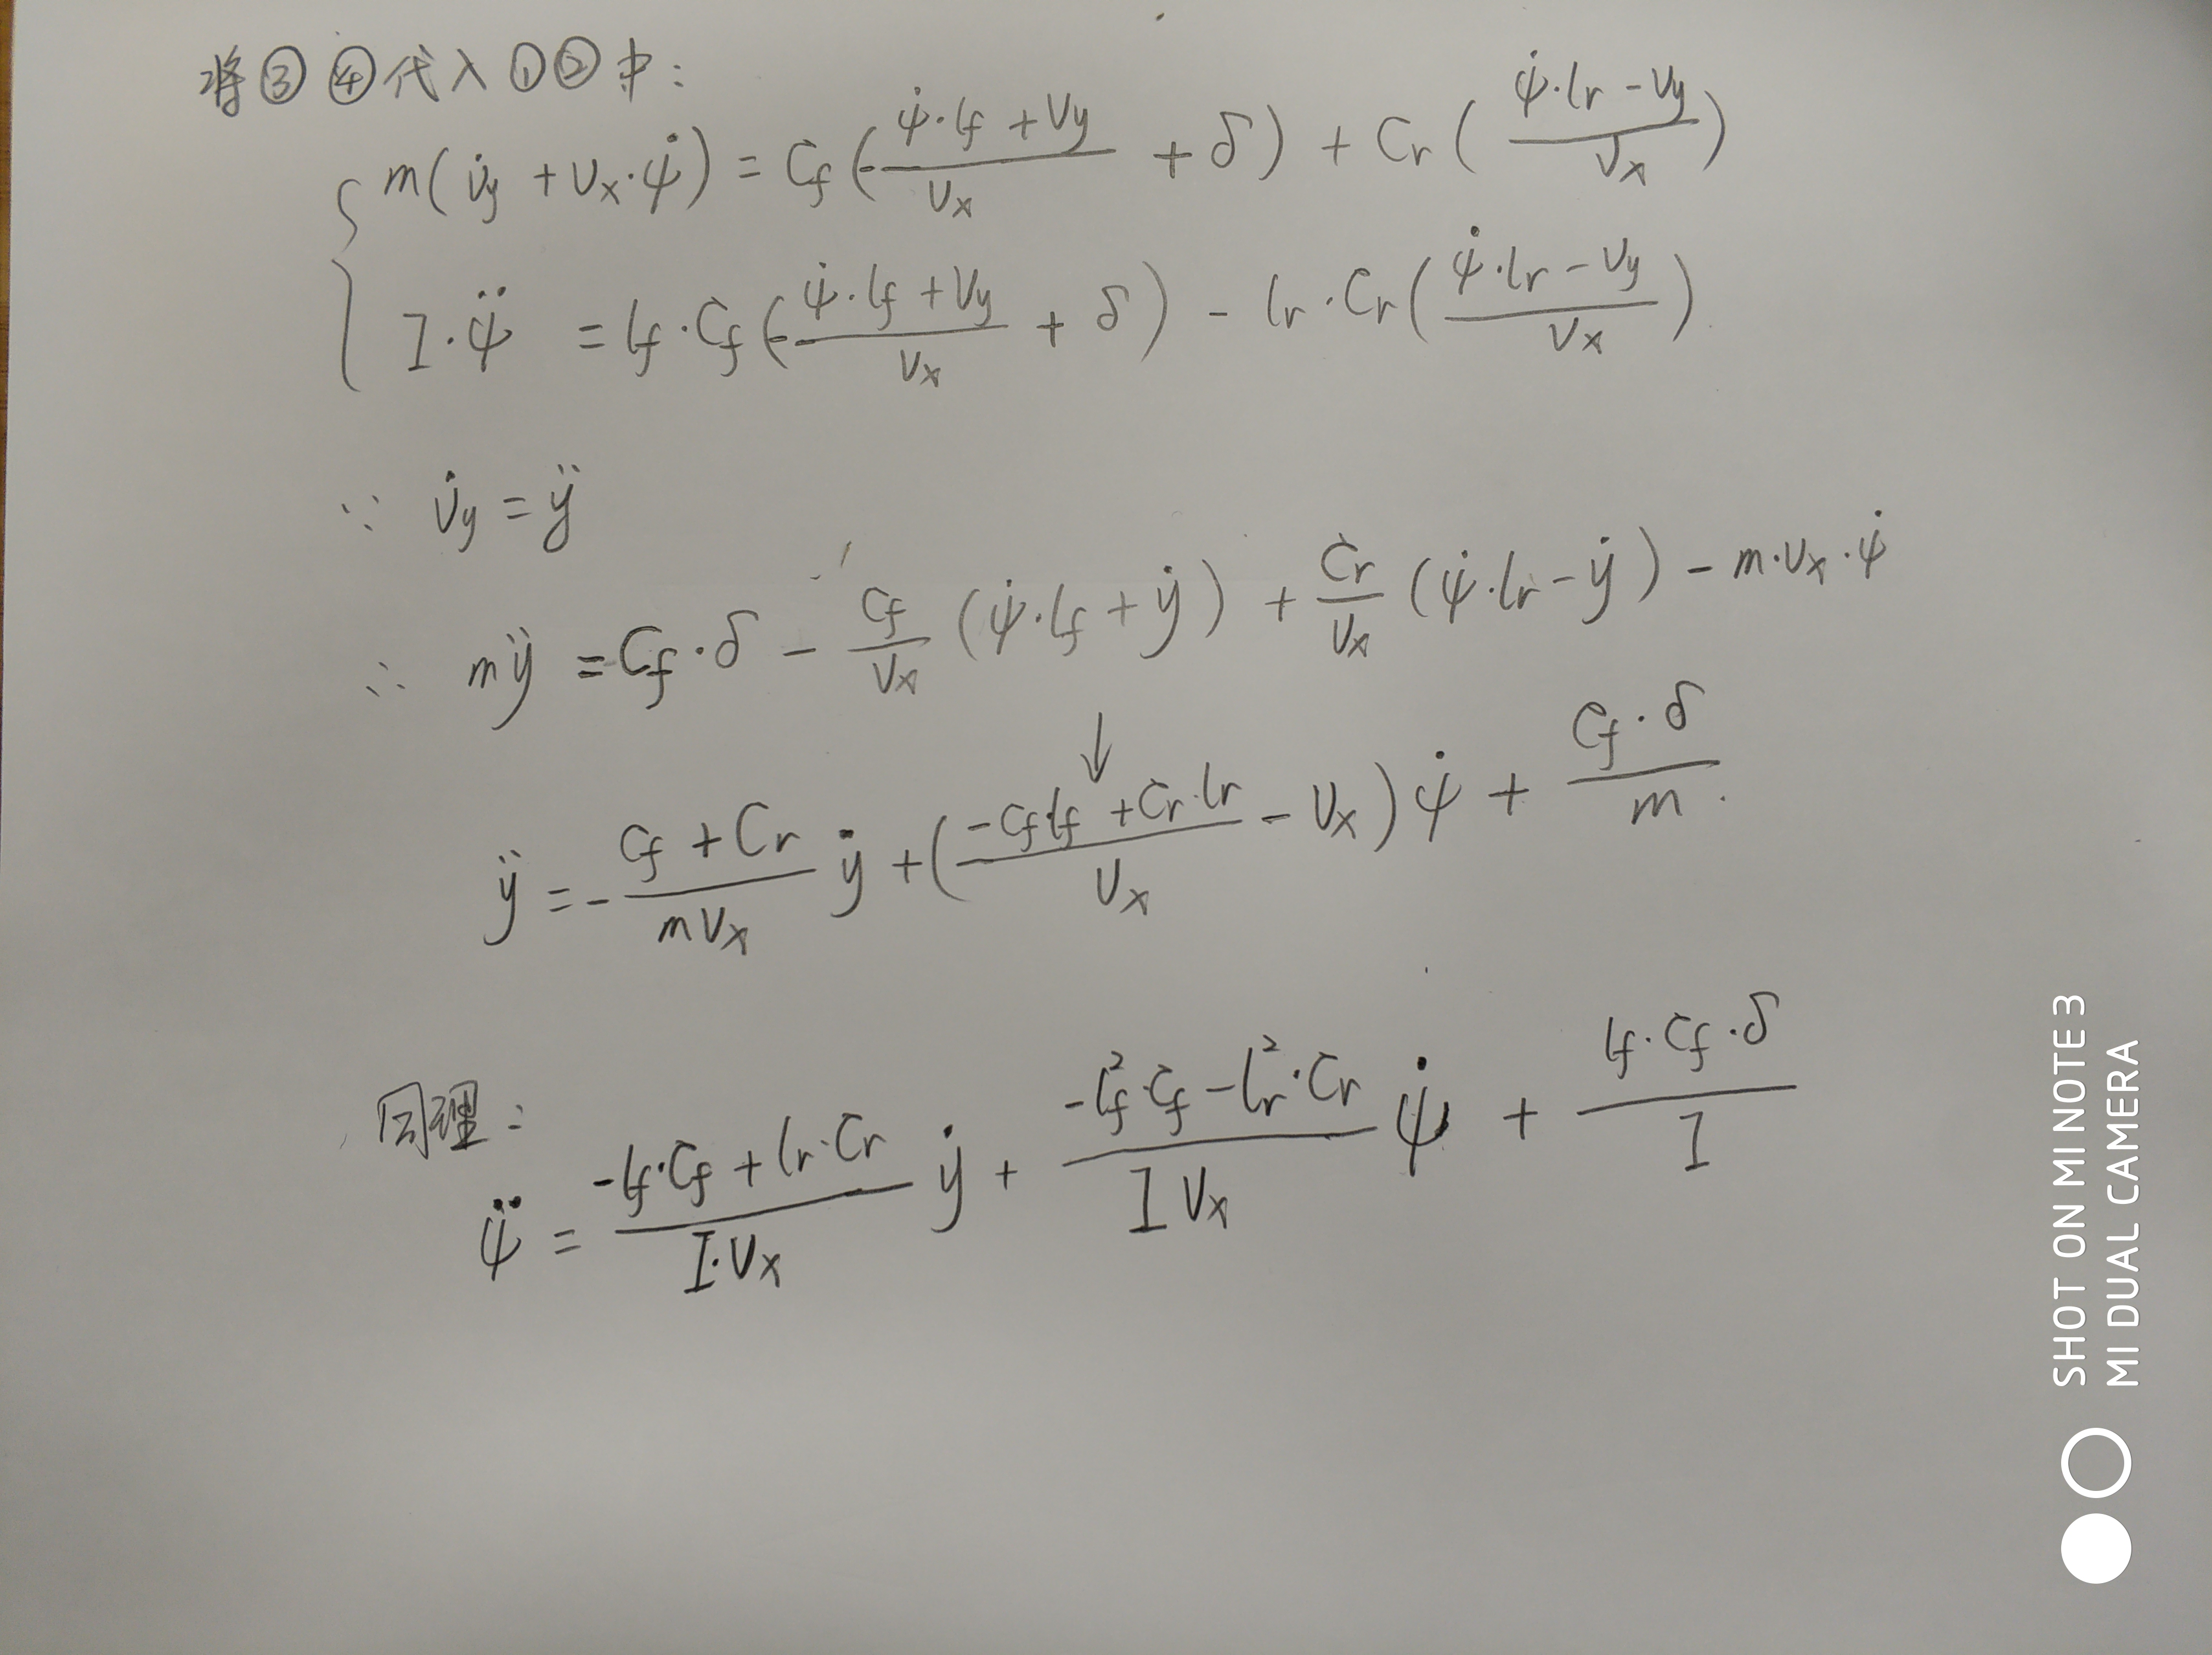 将③④代入①②中:
{ m(v̇y + vx·ψ̇) = Cf(-(ψ̇·lf + vy)/vx + δ) + Cr((ψ̇·lr - vy)/vx)
{ I·ψ̈ = lf·Cf(-(ψ̇·lf + vy)/vx + δ) - lr·Cr((ψ̇·lr - vy)/vx)
∵ v̇y = ÿ
∴ mÿ = Cf·δ - Cf/vx (ψ̇·lf + ẏ) + Cr/vx (ψ̇·lr - ẏ) - m·vx·ψ̇
ÿ = -(Cf + Cr)/(mvx) ẏ + ((-Cf·lf + Cr·lr)/vx - vx)ψ̇ + (Cf·δ)/m.
同理:
ψ̈ = (-lf·Cf + lr·Cr)/(I·vx) ẏ + (-lf²·Cf - lr²·Cr)/(Ivx) ψ̇ + (lf·Cf·δ)/I
SHOT ON MI NOTE 3
MI DUAL CAMERA